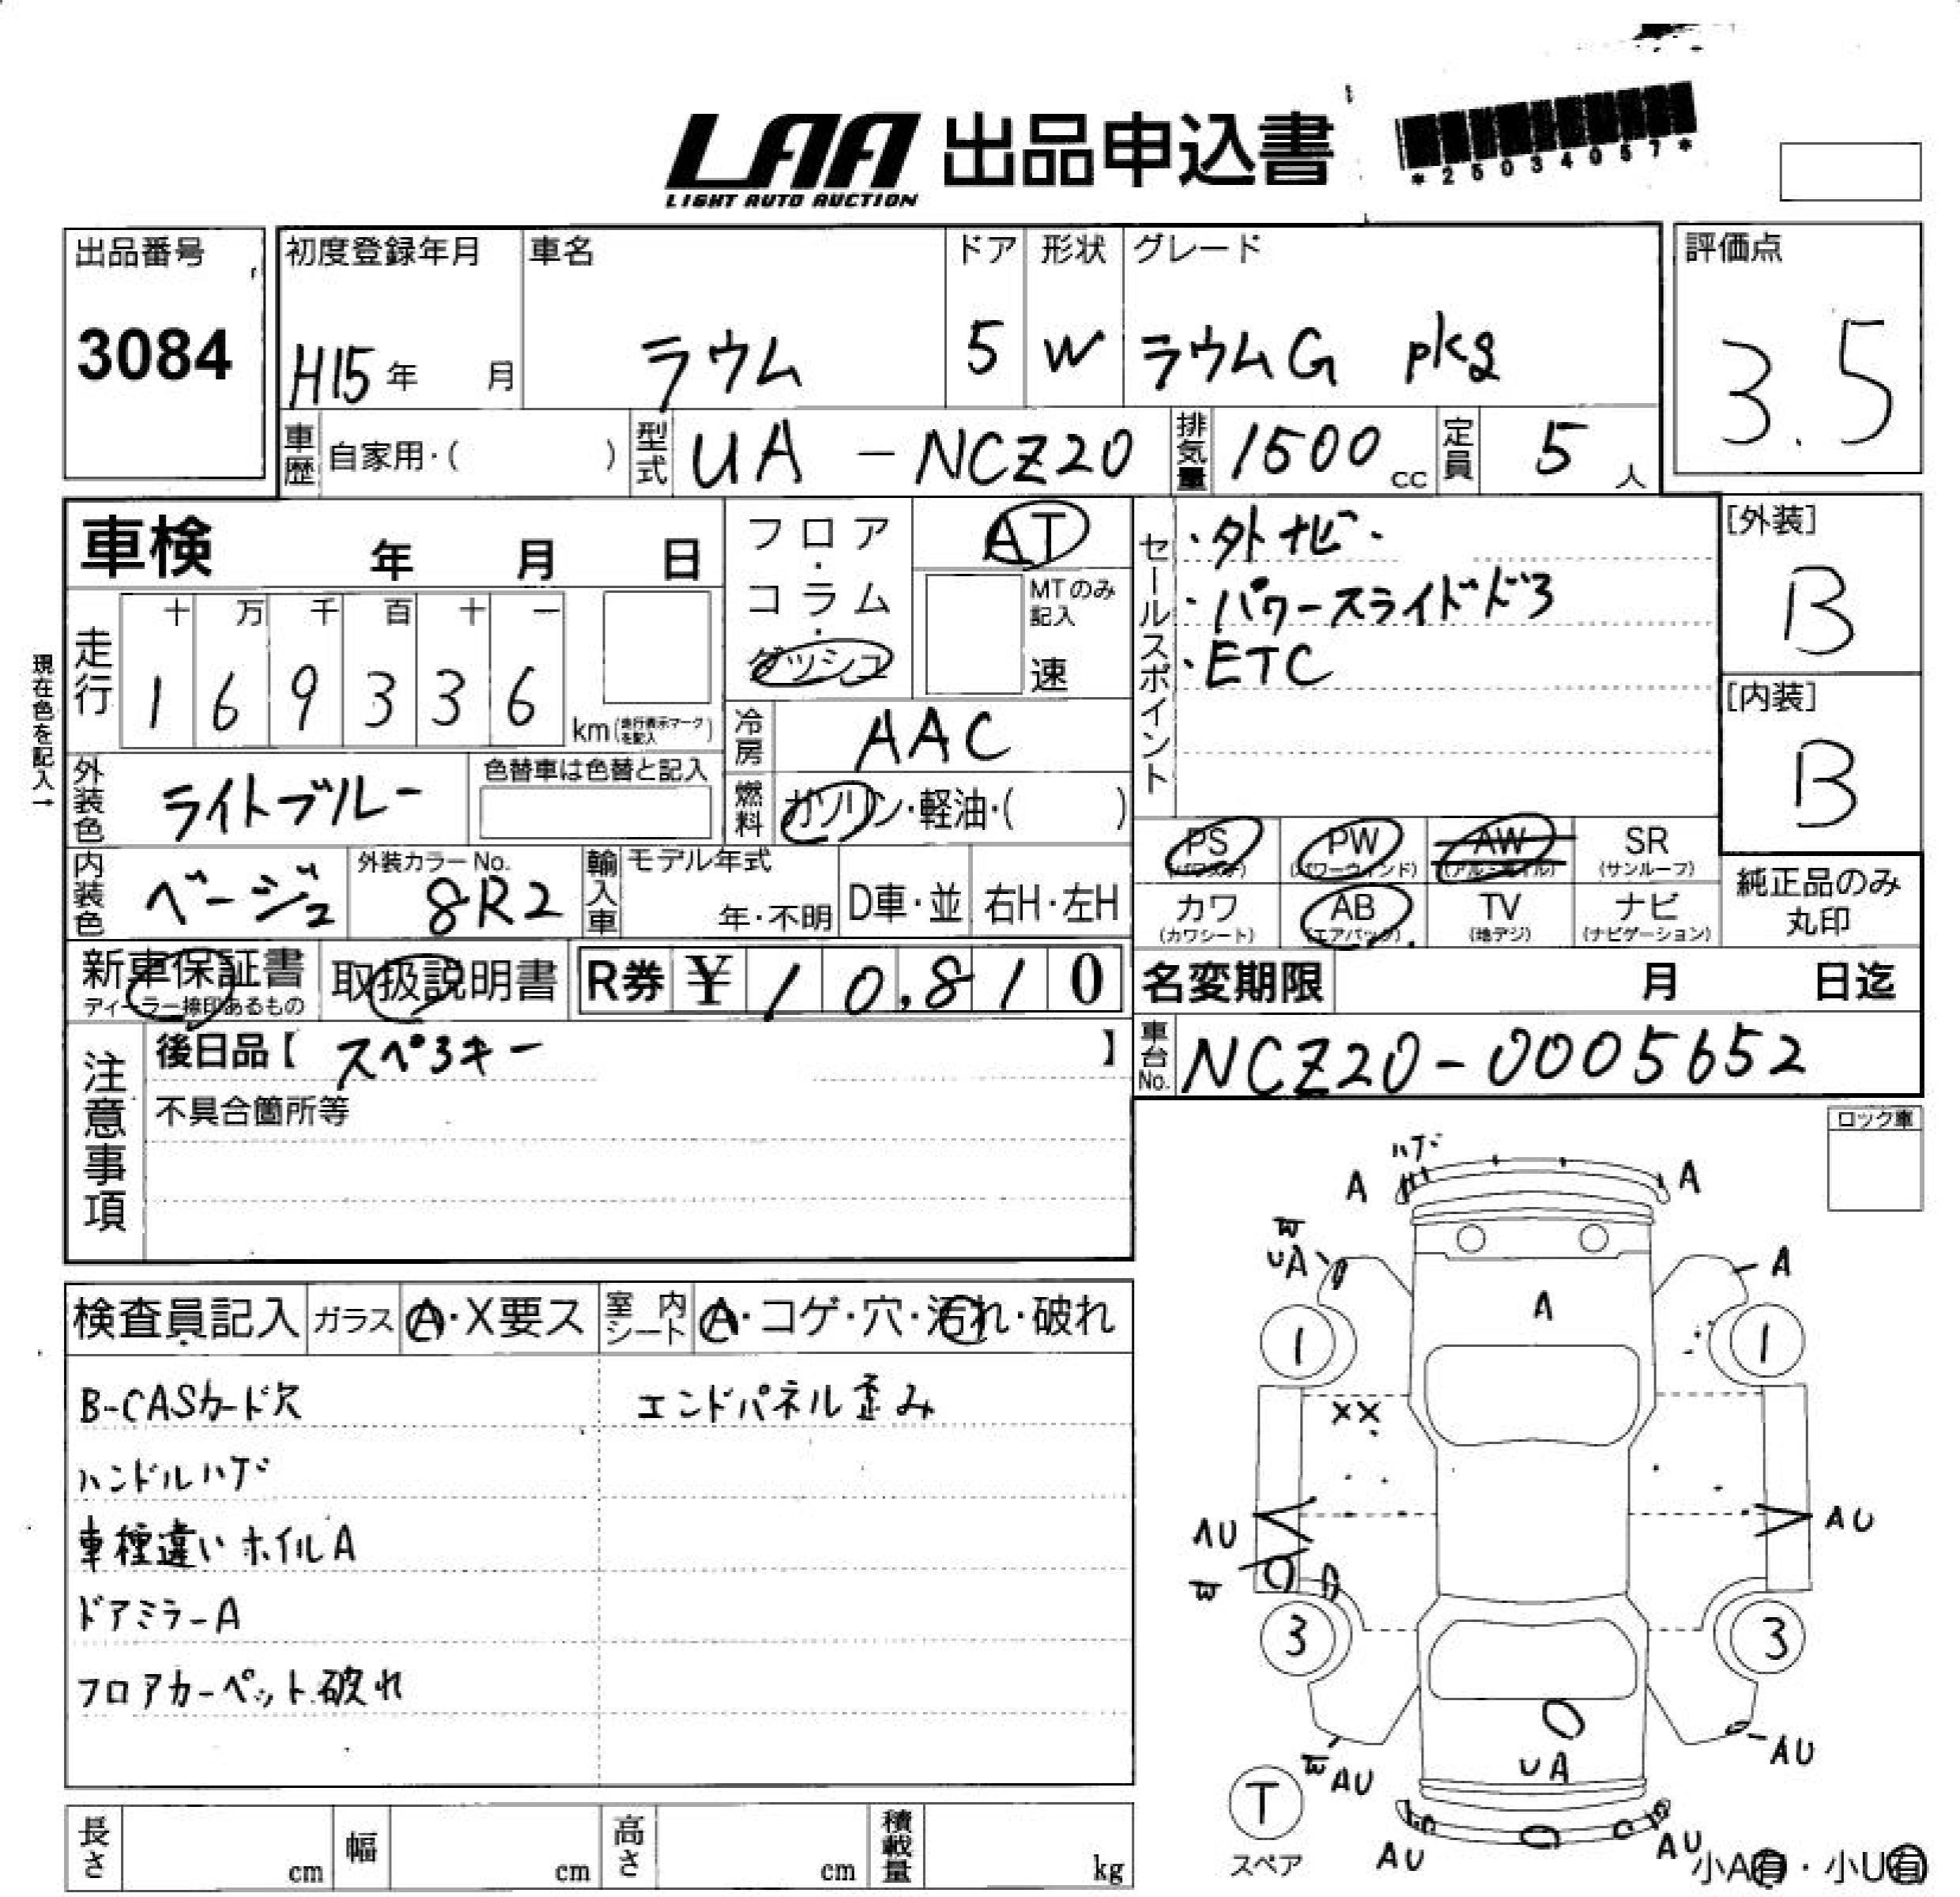 LAA 出品申込書
LIGHT AUTO AUCTION
*25034057*
出品番号
3084
初度登録年月
H15年 月
車名
ラウム
ドア
5
形状
W
グレード
ラウムG pkg
評価点
3.5
車歴 自家用・( )
型式 UA-NCZ20
排気量 1500 cc
定員 5 人
車検 年 月 日
フロア・コラム・ダッシュ
AT
MTのみ記入
速
セールスポイント
・外ナビ・
・パワースライドドア
・ETC
[外装]
B
[内装]
B
現在色を記入→
走行
十 万 千 百 十 一
1 6 9 3 3 6
km(走行表示マークを記入)
冷房 AAC
燃料 ガソリン・軽油・( )
外装色 ライトブルー
色替車は色替と記入
内装色 ベージュ
外装カラーNo.
8R2
輸入車
モデル年式
年・不明
D車・並
右H・左H
PS
(パワステ)
PW
(パワーウィンド)
AW
(アルミホイル)
SR
(サンルーフ)
カワ
(カワシート)
AB
(エアバッグ)
TV
(地デジ)
ナビ
(ナビゲーション)
純正品のみ
丸印
新車保証書
ディーラー捺印あるもの
取扱説明書
R券 ¥ 10,810
名変期限 月 日迄
車台No. NCZ20-0005652
注意事項
後日品【 スペアキー 】
不具合箇所等
ロック車
検査員記入
ガラス
A・X要ス
室内シート
A・コゲ・穴・汚れ・破れ
B-CASカード欠
エンドパネル歪み
ハンドルハゲ
車種違いホイルA
ドアミラーA
フロアカーペット破れ
ハゲ
A
A
UA
A
A
1
1
XX
AU
AU
3
3
AU
UA
AU
T
スペア
AU
AU
小A有・小U有
長さ cm
幅 cm
高さ cm
積載量 kg